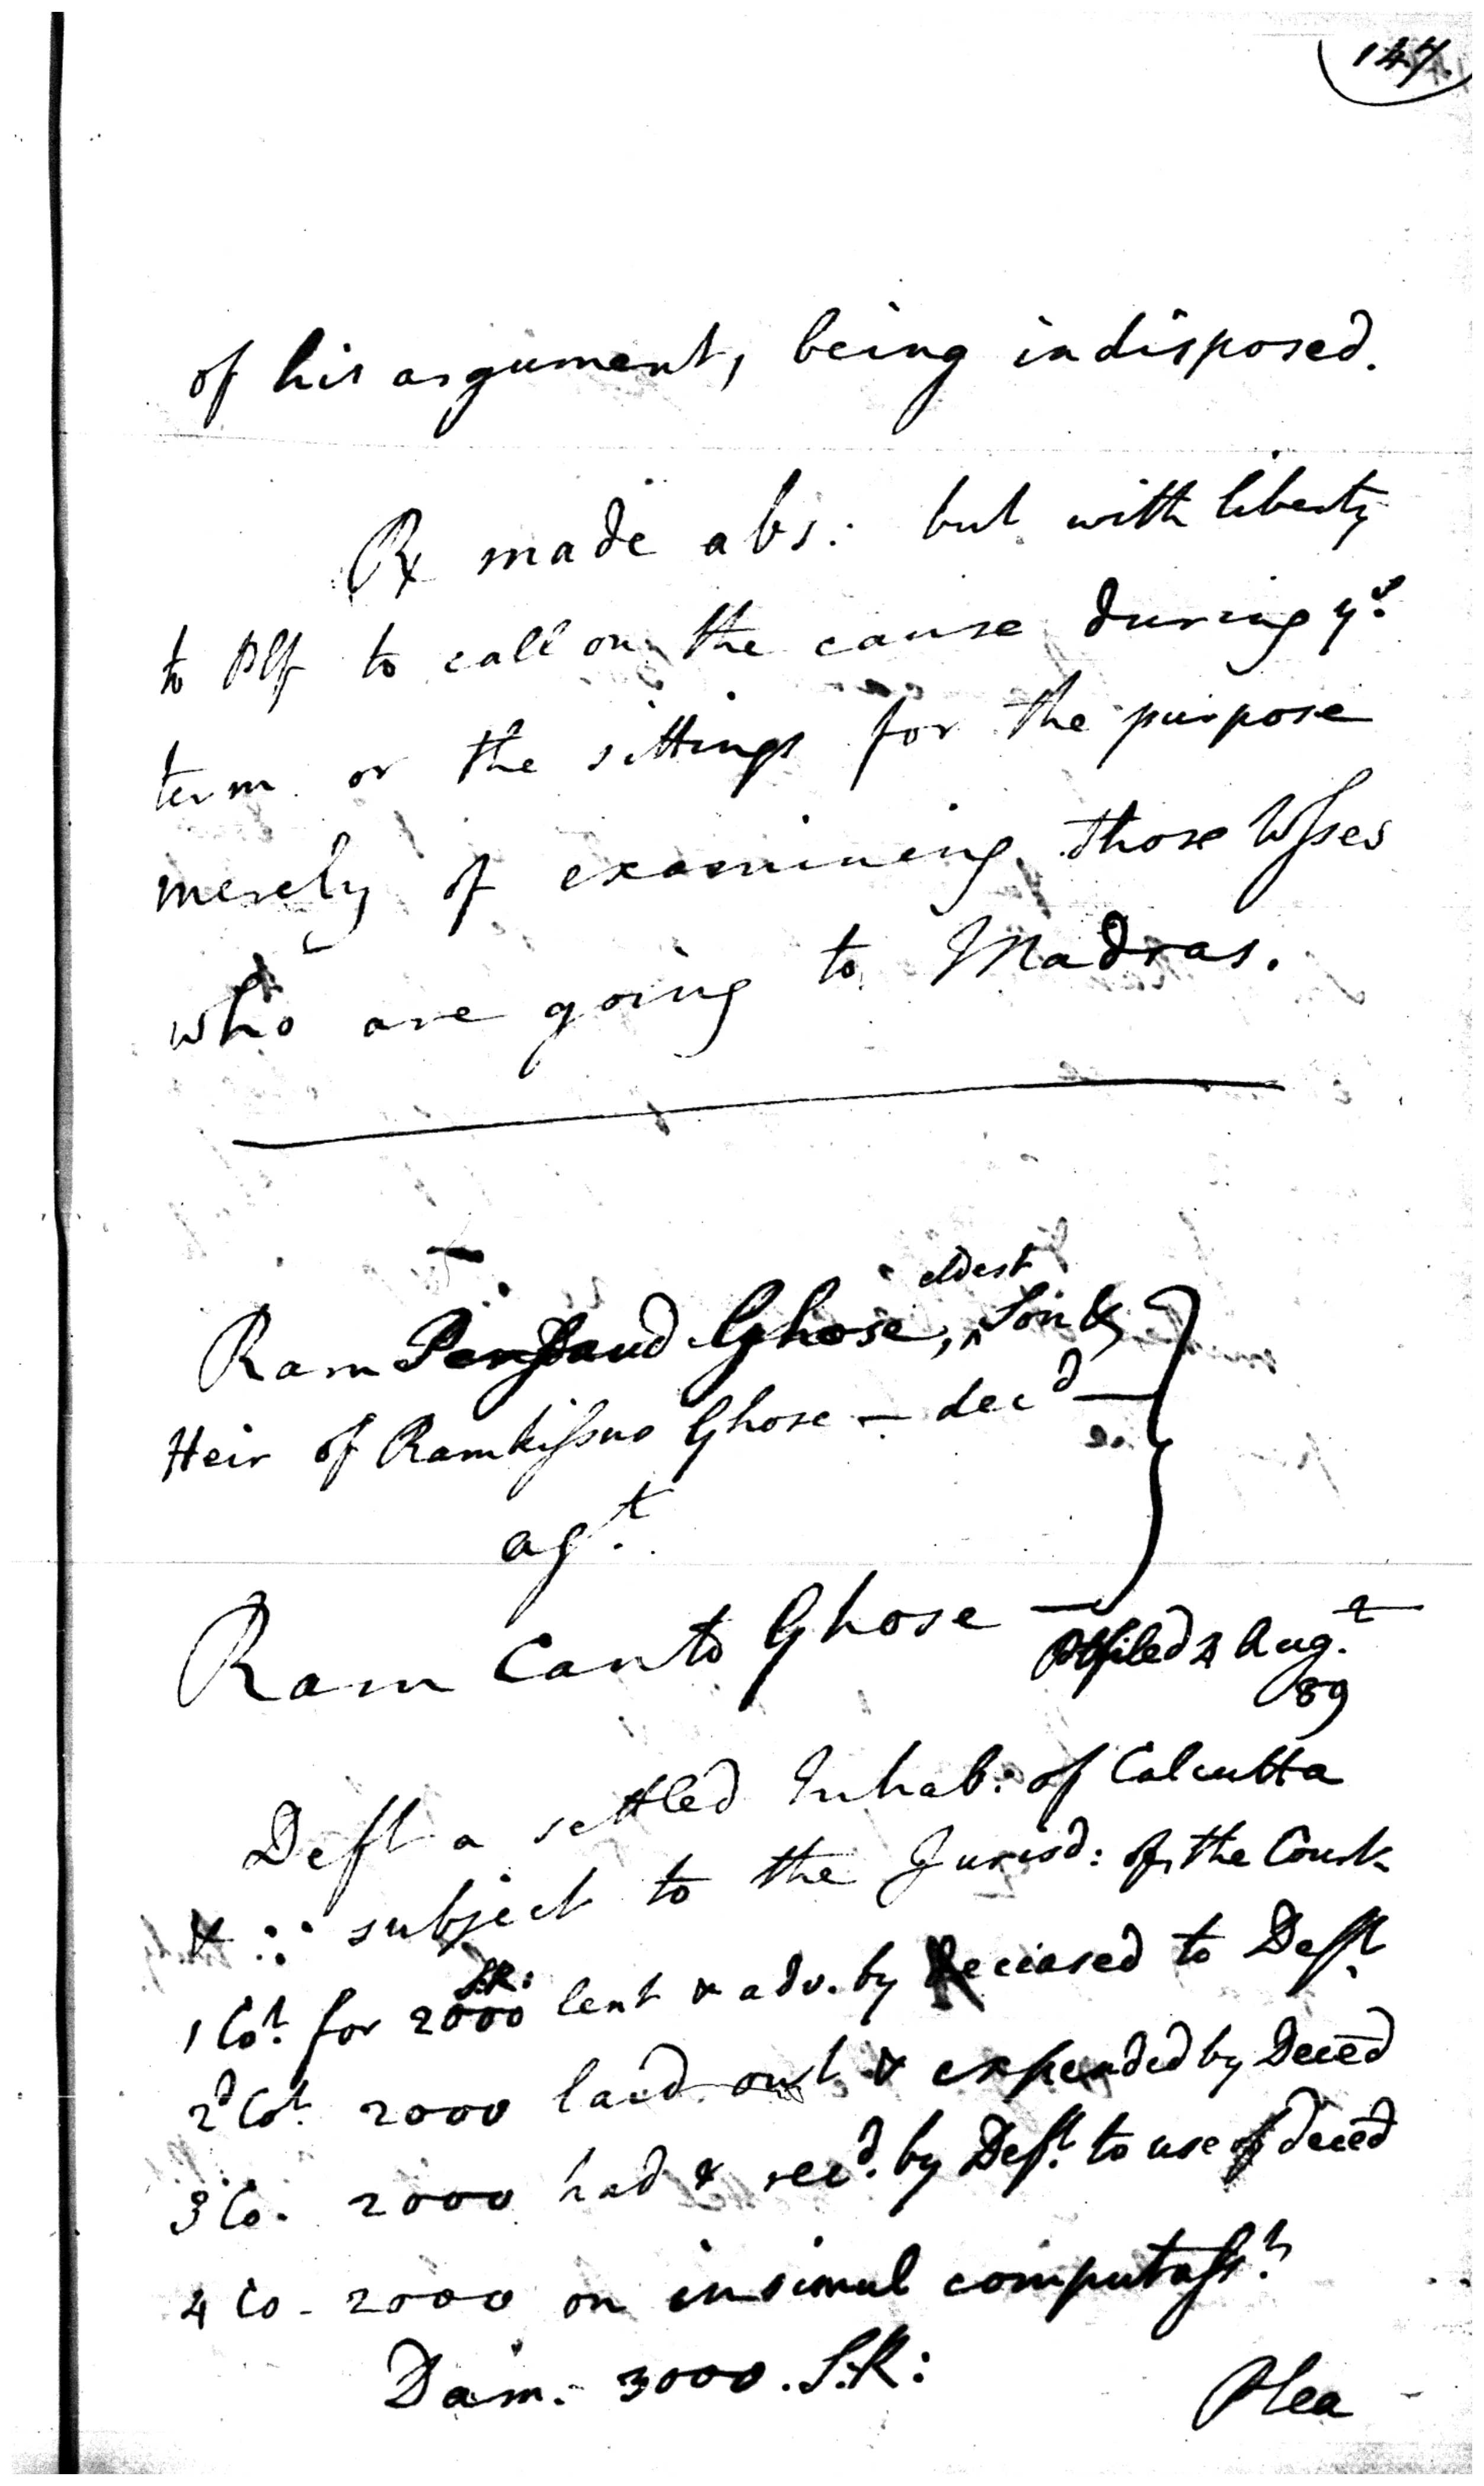 147.
of his argument, being indisposed.
Rx made abs: but with liberty
to Plf to call on the cause during ys.
term or the sittings for the purpose
merely of examining those Wsses
who are going to Madras.
Ram Persaud Ghose, eldest Son &
Heir of Ramkissno Ghose - decd
agt.
Ram Canto Ghose
filed 4 Augt
89
Deft a settled Inhab: of Calcutta
& ∴ subject to the Jurisd: of the Court
1 Cot. for 2000 S.R: lent & adv. by Deceased to Deft
2d Cot. 2000 laid out & expended by Deced
3 Co. 2000 had & recd. by Deft. to use of deced
4 Co - 2000 on insimul computasst.
Dam. 3000. S.R:
Plea